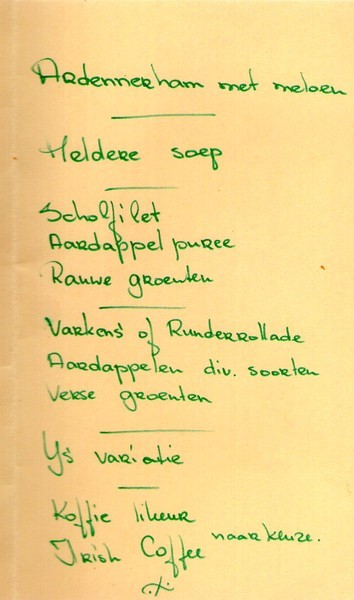 Ardennerham met meloen
Heldere soep
Scholfilet
Aardappel puree
Rauwe groenten
Varkens of Runderrollade
Aardappelen div. soorten
Verse groenten
Ys variatie
Koffie likeur
Irish Coffee naar keuze.